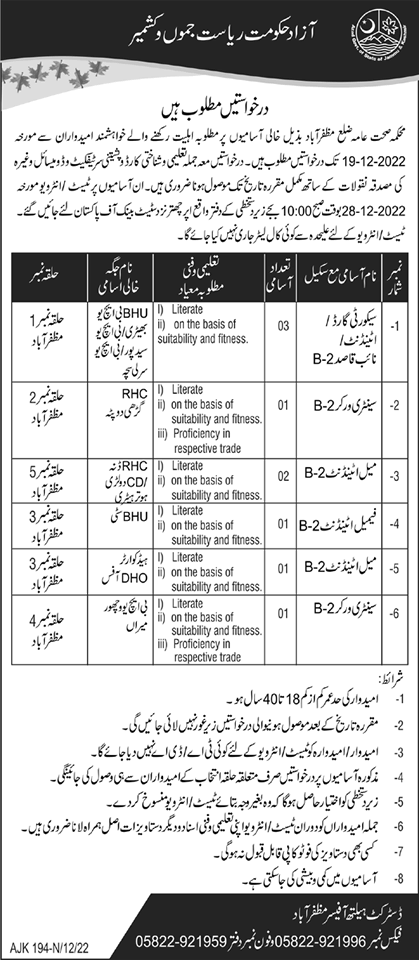 آزاد حکومت ریاست جموں و کشمیر
درخواستیں مطلوب ہیں
محکمہ صحت عامہ ضلع مظفرآباد بذیل خالی آسامیوں پر مطلوبہ اہلیت رکھنے والے خواہشمند امیدواران سے مورخہ
19-12-2022 تک درخواستیں مطلوب ہیں۔ درخواستیں معہ جملہ تعلیمی و شناختی کارڈ و پشتینی سرٹیفکیٹ و ڈومیسائل وغیرہ
کی مصدقہ نقولات کے ساتھ مکمل مقررہ تاریخ تک موصول ہونا ضروری ہیں۔ ان آسامیوں پر ٹیسٹ/انٹرویو مورخہ
28-12-2022 بوقت صبح 10:00 بجے زیر دستخطی کے دفتر واقع اپر چھتر نزد سٹیٹ بینک آف پاکستان لئے جائیں گے۔
ٹیسٹ/انٹرویو کے لئے علیحدہ سے کوئی کال لیٹر جاری نہیں کیا جائے گا۔
نمبر شمار | نام آسامی مع سکیل | تعداد آسامی | تعلیمی و فنی مطلوبہ معیار | نام جگہ خالی اسامی | حلقہ نمبر
1- | سیکورٹی گارڈ/اٹینڈنٹ/نائب قاصد B-2 | 03 | I) Literate ii) on the basis of suitability and fitness. | BHU بی ایچ یو بھیڑی/بی ایچ یو سیدپور/بی ایچ یو سرلی سچہ | حلقہ نمبر 1 مظفرآباد
2- | سینٹری ورکر B-2 | 01 | I) Literate ii) on the basis of suitability and fitness. iii) Proficiency in respective trade | RHC گڑھی دوپٹہ | حلقہ نمبر 2 مظفرآباد
3- | میل اٹینڈنٹ B-2 | 02 | I) Literate ii) on the basis of suitability and fitness. | RHC دنہ /CD دولڑی ہوتریڑی | حلقہ نمبر 5 مظفرآباد
4- | فیمیل اٹینڈنٹ B-2 | 01 | I) Literate ii) on the basis of suitability and fitness. | BHU سٹی | حلقہ نمبر 3 مظفرآباد
5- | میل اٹینڈنٹ B-2 | 01 | I) Literate ii) on the basis of suitability and fitness. | ہیڈ کوارٹر DHO آفس | حلقہ نمبر 3 مظفرآباد
6- | سینٹری ورکر B-2 | 01 | I) Literate ii) on the basis of suitability and fitness. iii) Proficiency in respective trade | بی ایچ یو میراں | حلقہ نمبر 4 مظفرآباد
شرائط:
1- امیدوار کی حد عمر کم از کم 18 تا 40 سال ہو۔
2- مقررہ تاریخ کے بعد موصول ہونیوالی درخواستیں زیر غور نہیں لائی جائیں گی۔
3- امیدوار/امیدوارہ کو ٹیسٹ/انٹرویو کے لئے کوئی ٹی اے/ڈی اے نہیں دیا جائے گا۔
4- مذکورہ آسامیوں پر درخواستیں صرف متعلقہ حلقہ انتخاب کے امیدواران سے ہی وصول کی جائینگی۔
5- زیر دستخطی کو اختیار حاصل ہوگا کہ وہ بغیر وجہ بتائے ٹیسٹ/انٹرویو منسوخ کر دے۔
6- جملہ امیدواران کو دوران ٹیسٹ/انٹرویو اپنی تعلیمی و فنی اسناد و دیگر دستاویزات اصل ہمراہ لانا ضروری ہیں۔
7- کسی بھی دستاویز کی فوٹو کاپی قابل قبول نہ ہوگی۔
8- آسامیوں میں کمی و بیشی کی جاسکتی ہے۔
ڈسٹرکٹ ہیلتھ آفیسر مظفرآباد
فیکس نمبر 05822-921996 و فون نمبر دفتر 05822-921959
AJK 194-N/12/22